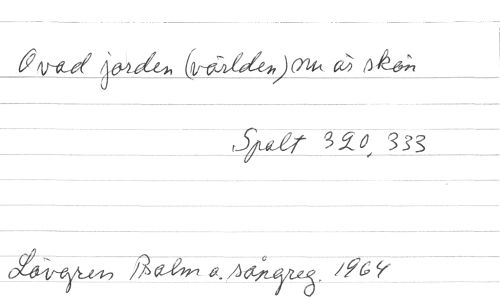 O vad jorden (världen) nu är skön
Spalt 320, 333
Lövgren Psalm o. sångreg. 1964